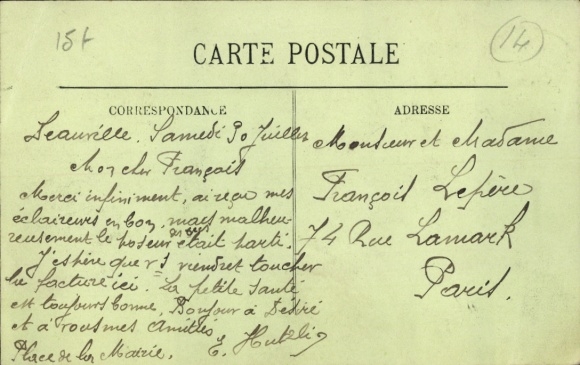 15f
14
CARTE POSTALE
CORRESPONDANCE
Deauville. Samedi 30 Juillet
Mon cher François
Merci infiniment, ai reçu mes
éclaireurs en bon, mais malheu-
reusement le poseur était parti.
J'espère que vs viendrez toucher
la facture ici. La petite santé
est toujours bonne, Bonjour à Désiré
et à vous mes Amitiés
Place de la Mairie. E.
ADRESSE
Monsieur et Madame
François Lepère
74 Rue Lamark
Paris.